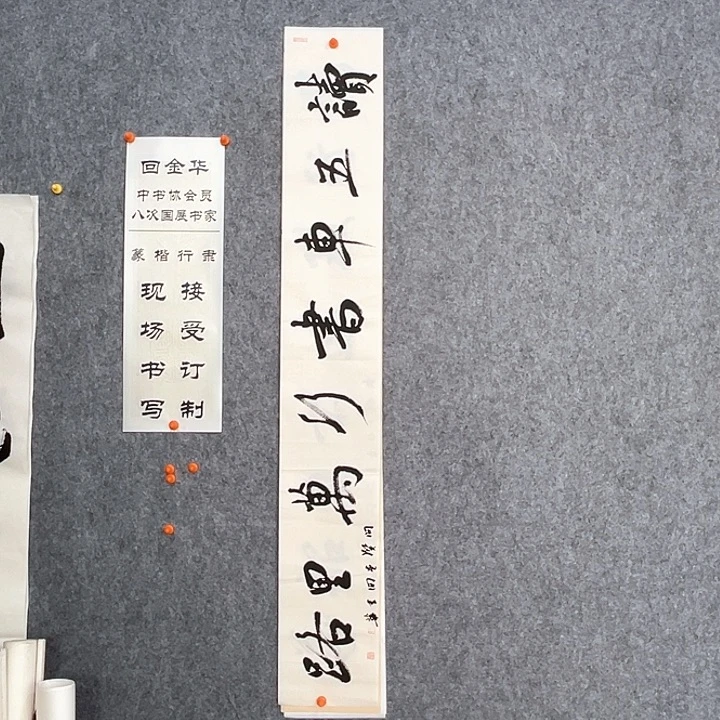 回金华
中书协会员
八次国展书家
篆楷行肃
现场书写
接受订制
讀五車書行萬里路